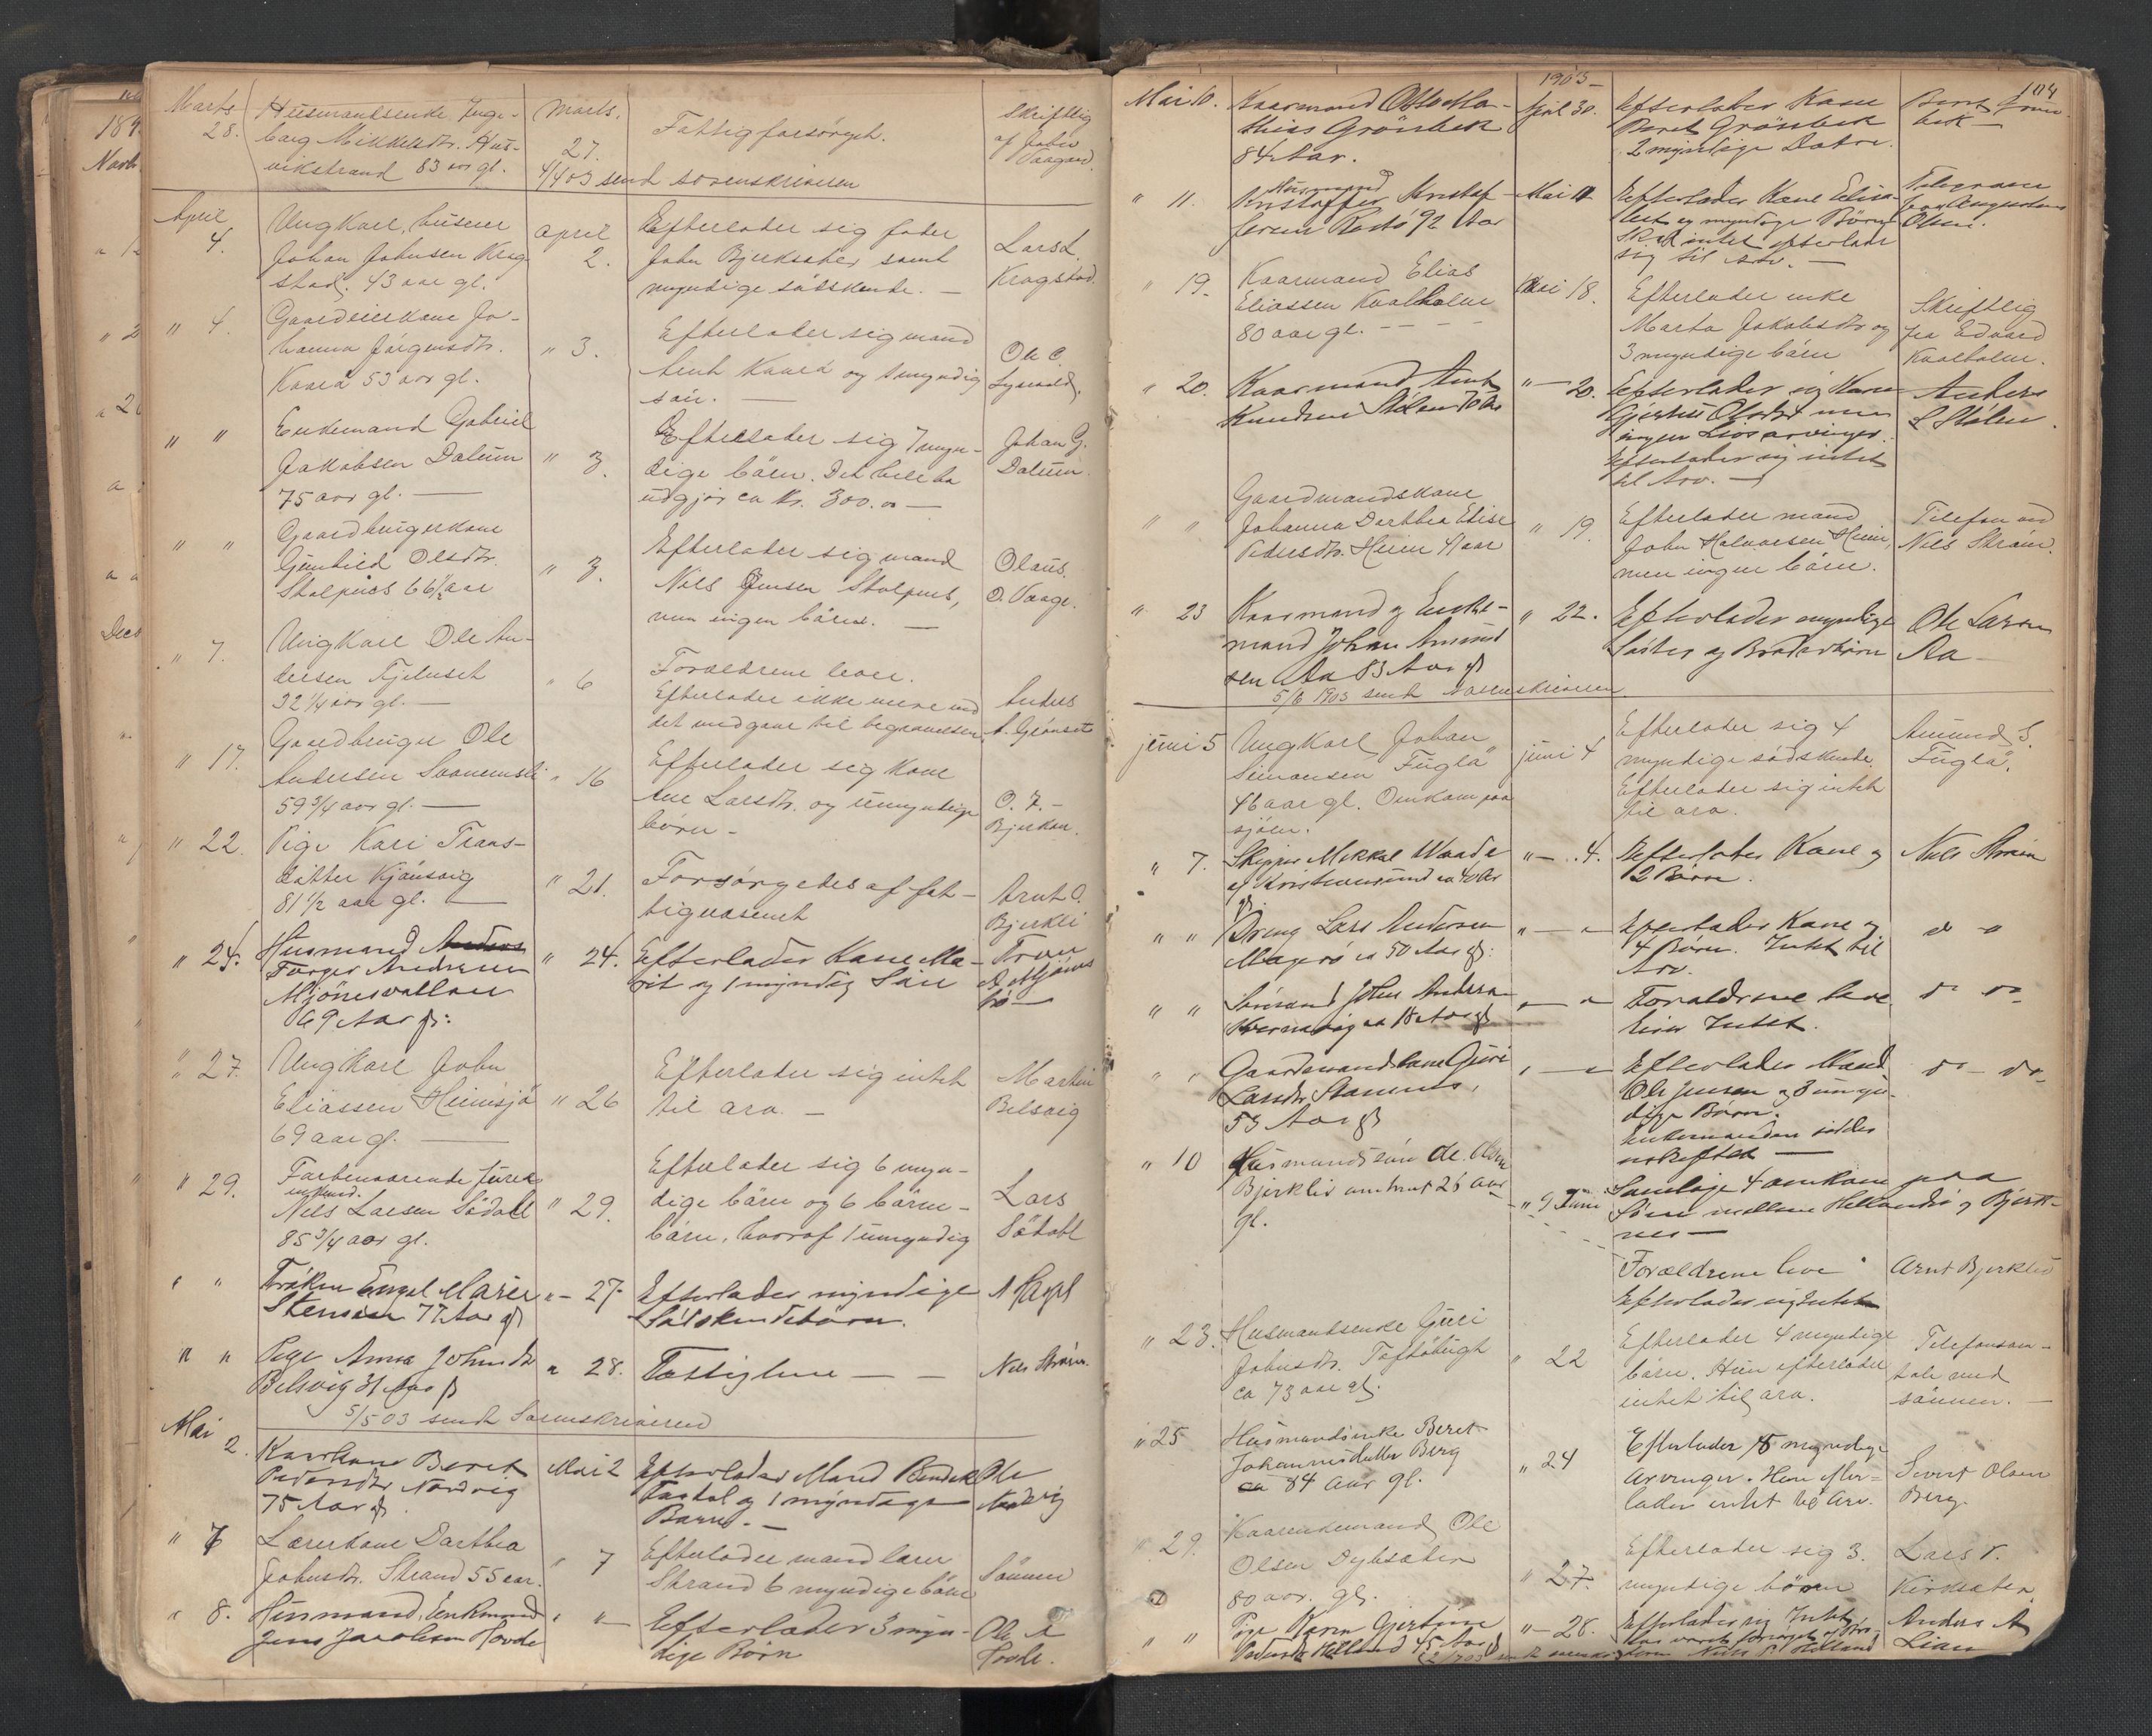 Marts
28.
Husmandsenke Inge-
borg Mikkelsdtr. Hus-
vikstrand 83 aar gl.
Marts.
27.
Fattigforsørget.
Skriftlig
af John
Vaagan
4/4 03 sendt sorenskriveren
April
4.
Ungkarl, 
Johan Johnsen Krog
stad. 43 aar gl.
April
2.
Efterlader sig fader
John Bjerksæter samt
myndige södskende. —
Lars L.
Krogstad.
" 4.
Gaardeierkone Jo-
hanna Jörgensdtr.
53 aar gl.
" 3.
Efterlader sig mand
Arnt og 1 myndig
sön. —
Ole C.
" "
Enkemand Gabriel
Jakobsen Dalum
75 aar gl. —
" 3.
Efterlader sig 7 myn-
dige börn. Det hele bo
udgjör ca Kr. 300.00 —
Johan G.
Dalum.
" "
Gaardbrugerkone
Gunhild Olsdtr.
Stolpnes 66 1/2 aar
" 3.
Efterlader sig mand
Nils Jensen Stolpnes,
men ingen börn. —
Olaus.
O. Vaage.
" 7.
Ungkarl Ole An-
dersen Fjeluset
32 1/4 aar gl. —
" 6
Forældrene lever.
Efterlader ikke mere end
det medgaar til begravelsen.
Anders
A. Grönset
" 17.
Gaardbruger Ole
Andersen Svanemsli
59 3/4 aar gl. —
" 16
Efterlader sig Kone
Ane Larsdtr. og umyndige
börn —
O. F. —
" 22.
Pige Kari Trons-
datter Kjönsvig
81 1/2 aar gl. —
" 21.
Forsörgedes af fat-
tigvæsenet
Arnt O.
Bjerkli
" 24.
Husmand Anders
Torger Andersen
Mjönesvollan
69 Aar gl:
" 24.
Efterlader Kone Ma-
rit og 1 myndig Sön
Tron
" 27.
Ungkarl John
Eliassen Heimsjö
69 aar gl. —
" 26
Efterlader sig intet
til arv. —
Martin
Belsvig
" 29.
Forhenværende
enkemd.
Nils Larsen Södahl
85 3/4 aar gl.
" 29.
Efterlader sig 6 myn-
dige börn og 6 börne-
börn, hvoraf 1 umyndig
Lars
Södahl
" "
Fröken Engel Marie
Stensen 77 Aar gl
" — 27.
Efterlader myndige
Södskendebörn.
" "
Pige Anna Johnsdtr
Belsvig 31 Aar gl
" 28.
Fattiglem — —
Nils Ström.
5/5 03 sendt Sorenskriveren
Mai
2.
Kaarkone Beret
Pedersdtr Nordvig
75 Aar gl
Mai 2
Efterlader Mand Bendik
og 1 myndige
Barn. —
Ole
Nordvig
" 7
Lærerkone Darthea
Johnsdtr. Strand 55 aar.
" 7
Efterlader mand lærer
Strand 6 myndige börn
Sönnen
" 8.
Husmand, Enkemand
Jens Jacobsen Hovde
" " —
Efterlader 3 myn-
dige Börn
Ole
Hovde.
1903 —
104
Mai 10.
Kaarmand Otto Ma-
thias Grönbek
84 Aar.
April 30.
Efterlader Kone
Beret Grönbek
2 myndige Dötre.
Bernt Grön-
bek —
" 11.
Husmand
Kristoffer Kristof-
fersen Rostö 92 Aar
Mai 11
Efterlader Kone Elisa-
bet og myndige Börn
Skal intet efterlade
sig til Arv. —
Telegram
fra Augustinus
Olsen.
" 19.
Kaarmand Elias
Eliassen Kvalholm
80 aar gl. — —
Mai 18.
Efterlader enke
Marta Jakobsdtr og
3 myndige börn
Skriftlig
fra Edvard
Kvalholm.
" 20.
Kaarmand Arnt
Knudsen Stölen 70 Aar
" — 20.
Efterlader sig Kone
Gjertrud Olsdtr men
ingen Livsarvinger.
Efterlader sig intet
til Arv. —
Anders
L Stölen.
" "
Gaardmandskone
Johanna Darthea Elise
Pedersdtr. Heim 41 aar
" 19.
Efterlader mand
John Halvorsen Heim,
men ingen börn.
Telefon ved
Nils Ström.
" 23
Kaarmand og Enke-
mand Johan Amund
sen Aa 83 Aar gl
" 22.
Efterlader myndige
Söster og Broderbörn
Ole Larsen
Aa —
5/6 1903 sendt Sorenskriveren
Juni 5
Ungkarl Johan
Simonsen Fuglå
46 aar gl. Omkom paa
sjöen.
Juni 4
Efterlader sig 4
myndige södskende.
Efterlader sig intet
til arv.
Amund S.
Fuglå.
" 7.
Skipper Mikkal Waade
af Kristiansund ca 40 Aar
gl.
" — 4.
Efterlader Kone og
12 Börn.
Nils Ström
" "
Dreng Lars Andersen
Magerö ca 50 Aar gl:
" — "
Efterlader Kone og
4 Börn. Intet til
Arv.
do "
" "
Sömand Johan Andersen
ca 18 Aar gl
" — "
Forældrene leve
Eier Intet.
do do
" "
Gaardmandskone Guri
Larsdtr Stamnes,
53 Aar gl
" — "
Efterlader Mand
Ole Jensen og 3 umyn-
dige Börn.
Enkemanden sidder
uskiftet —
do — do
" 10
Husmandssön Ole Olsen
Bjerkli omtrent 26 aar
gl.
" 9 Juni
Samtlige 4 omkom paa
Söen mellem Hellandsö og Bjerk-
nes —
Forældrene leve
Efterlader sig Intet
Arnt Bjerkli
" 23.
Husmandsenke Guri
Johnsdtr.
ca 73 aar gl.
" 22
Efterlader 4 myndige
börn. Hun efterlader
intet til arv.
Telefonsam-
tale med
sönnen. —
" 25
Husmandsenke Beret
Johannesdatter Berg
ca 84 aar gl.
" 24
Efterlader 5 myndige
arvinger. Hun efter-
lader intet til Arv.
Sivert Olsen
Berg.
" 29.
Kaarenkemand Ole
Olsen
80 aar. gl.
" 27.
Efterlader sig 3.
myndige börn
Lars
Kirksæter
" "
Pige Karen Gjertine
Pedersdtr Helland 45 Aar gl
" — 28.
Efterlader sig Intet
Anders A
Lian